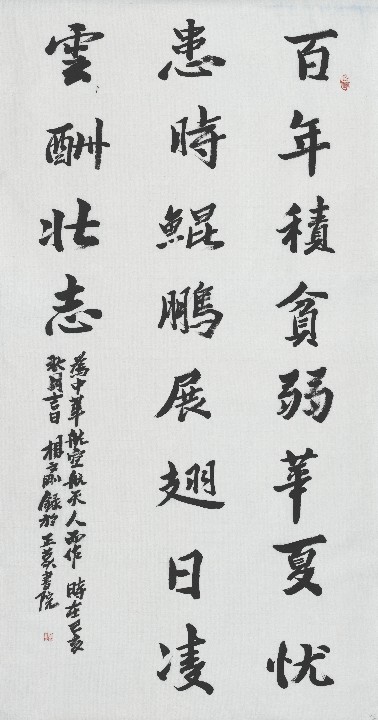 百年積貧弱華夏忧
患時鯤鵬展翅日凌
雲酬壯志
為中華航空航天人而作 時在己亥
秋月吉日 楊 錄於 書院